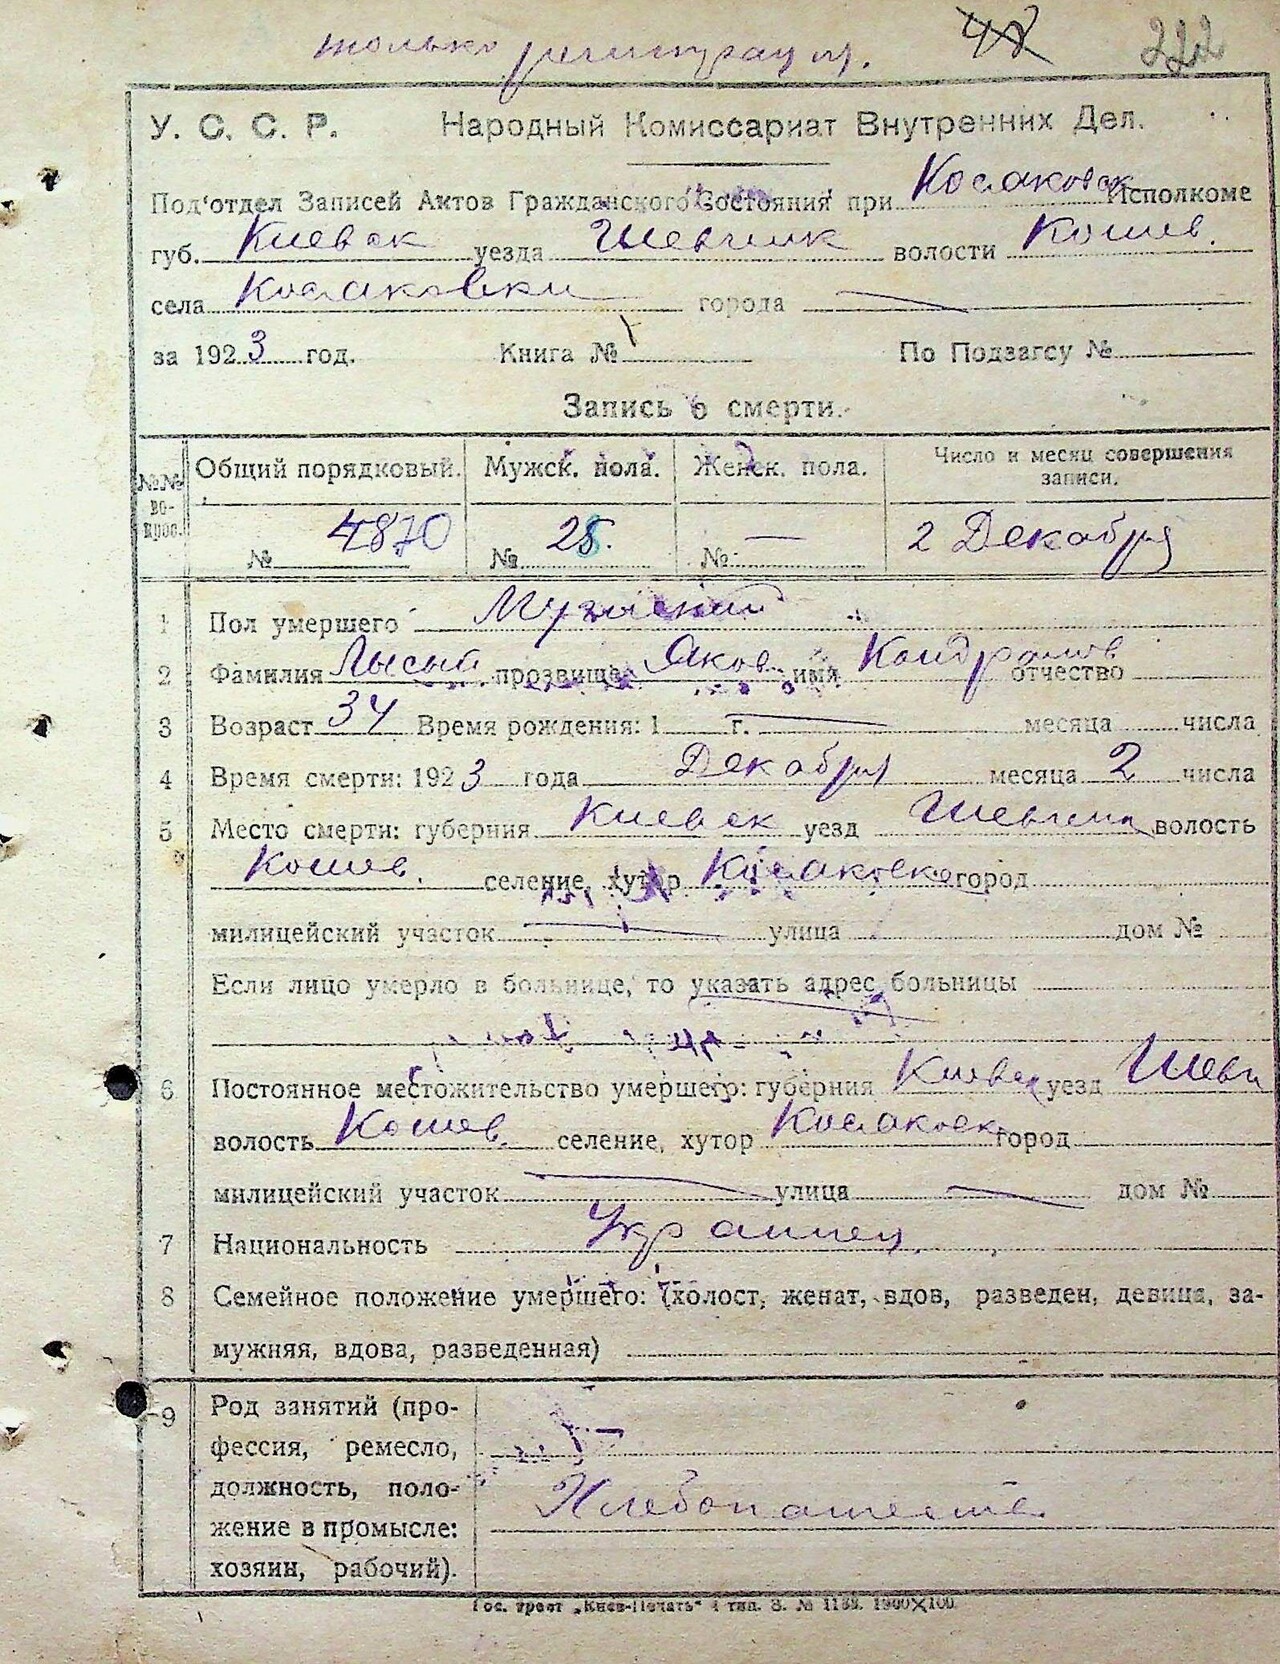 только регистрация.
48
222
У. С. С. Р. Народный Комиссариат Внутренних Дел.
Под'отдел Записей Актов Гражданского Состояния при Косаковск Исполкоме
губ. Киевск уезда Шевченк волости Кошев.
села Косаковки города
за 1923 год. Книга № По Подзагсу №
Запись о смерти.
№№ вопрос. Общий порядковый. Мужск. пола. Женск. пола. Число и месяц совершения записи.
№ 4870 № 28. № — 2 Декабря
1 Пол умершего Мужский
2 Фамилия Лысый прозвище Яков имя Кондратов отчество
3 Возраст 34 Время рождения: 1 г. месяца числа
4 Время смерти: 1923 года Декабря месяца 2 числа
5 Место смерти: губерния Киевск уезд Шевченк волость
Кошев. селение, хутор Косаковка город
милицейский участок улица дом №
Если лицо умерло в больнице, то указать адрес больницы
6 Постоянное местожительство умершего: губерния Киевск уезд Шевч
волость Кошев. селение, хутор Косаковк город
милицейский участок улица дом №
7 Национальность Украинец
8 Семейное положение умершего: (холост, женат, вдов, разведен, девица, за-
мужняя, вдова, разведенная)
9 Род занятий (про-
фессия, ремесло,
должность, поло- Хлебопашеств.
жение в промысле:
хозяин, рабочий).
Гос. трест „Киев-Печать" 4 тип. З. № 1132. 1900×100